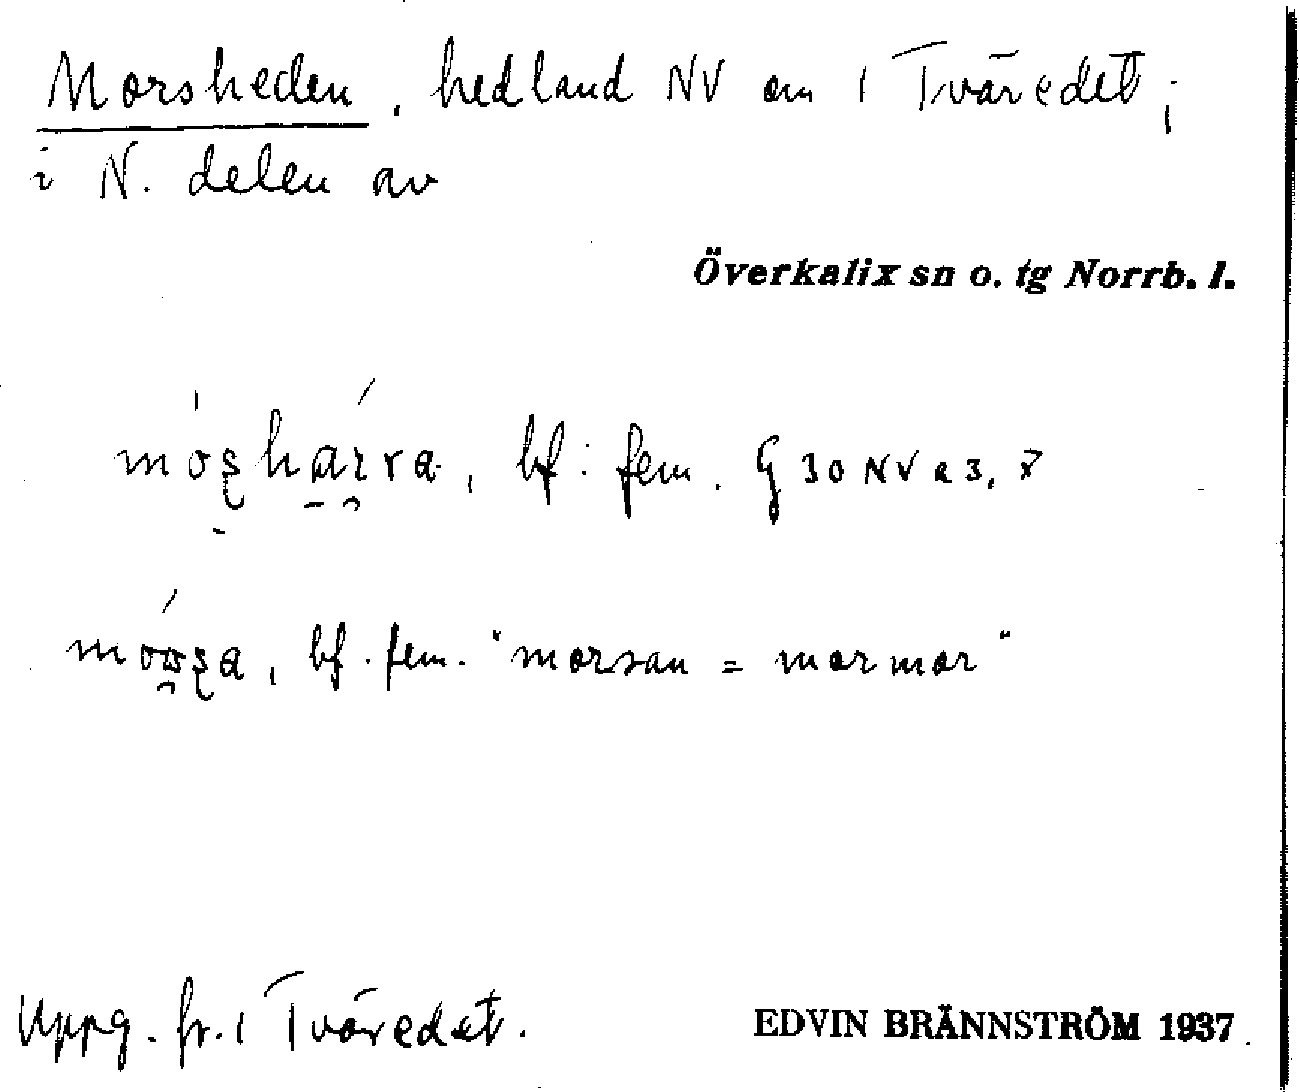 Morsheden, hedland NV om 1 Tväredet;
i N. delen av
Överkalix sn o. tg Norrb. l.
bf. fem. G 30 NV a 3, 8
bf. fem. "morsan = mormor"
Uppg. fr. 1 Tväredet.
EDVIN BRÄNNSTRÖM 1937.